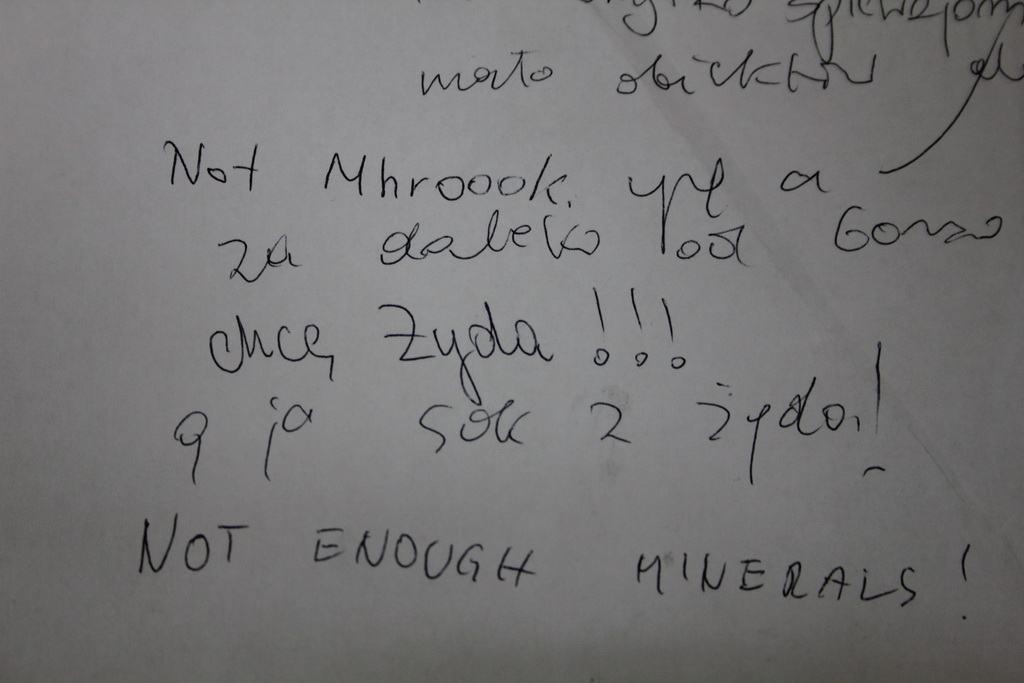 mało obiektów
Not Mhroook. a
za daleko od Gonzo
chcę Żyda!!!
a ja sok z żyda!
NOT ENOUGH MINERALS!